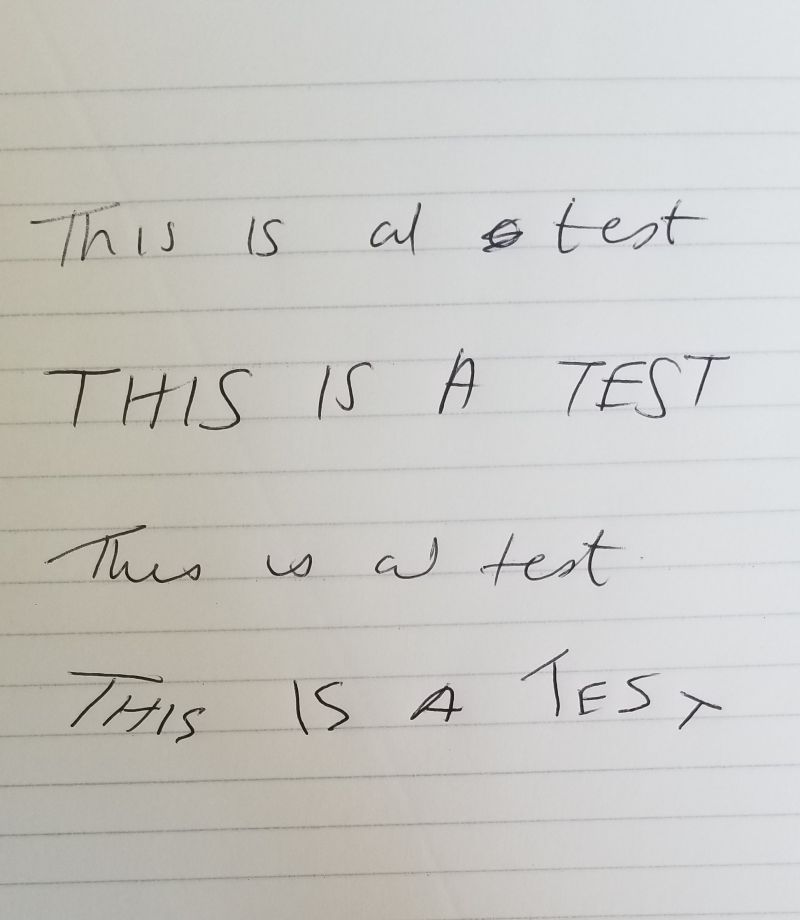 This is a test
THIS IS A TEST
This is a test
THIS IS A TEST